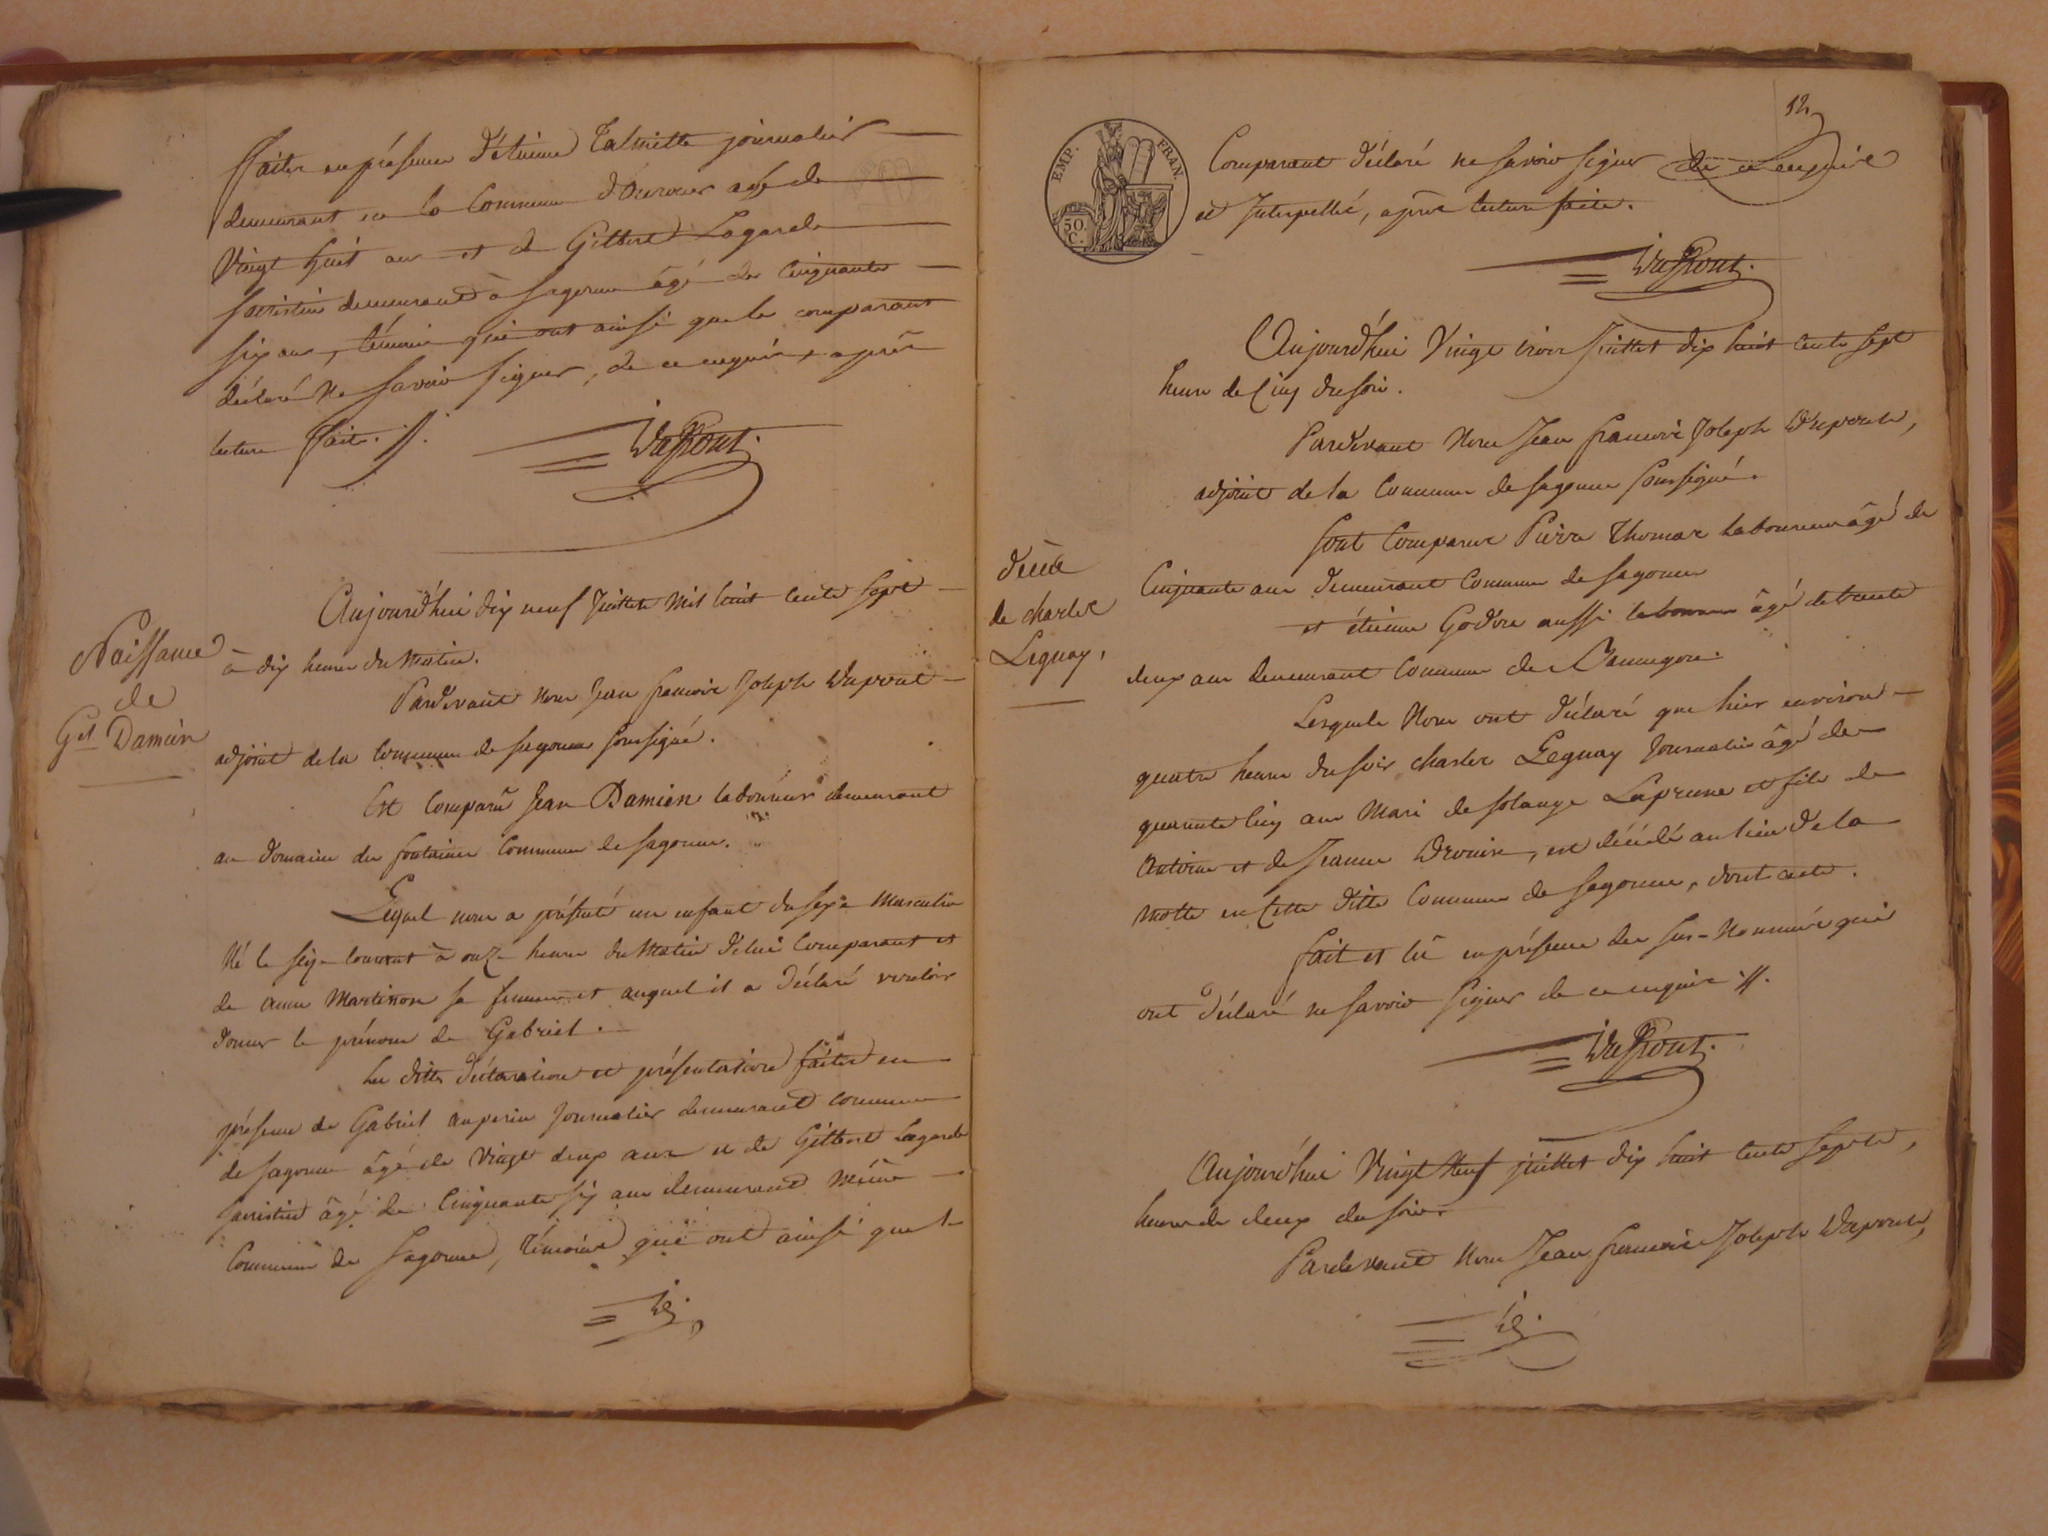 faites en présence d'étienne Talmitte journalier
demeurant en la Commune d'ourouer agé de
Vingt huit ans et de Gilbert Lagarde
sacristin demeurant à Sagonne âgé de Cinquante
six ans, témoins qui ont ainsi que le comparant
déclaré ne savoir signer, de ce enquis, après
lecture faite. //.
DuPront.
Naissance
de
Gel Damien
Aujourd'hui dix neuf Juillet Mil huit cents sept
à dix heures du Matin.
Pardevant nous Jean françois Joseph Dupront
adjoint de la Commune de Sagonne soussigné.
Est Comparu Jean Damien laboureur demeurant
au domaine des fontaines Commune de Sagonne.
Lequel nous a présenté un enfant du sexe Masculin
Né le seize courant à onze heures du Matin de lui Comparant et
de anne Martinon sa femme et auquel il a déclaré vouloir
donner le prénom de Gabriel.
Les dittes déclaration et présentation faites en
présence de Gabriel auperin Journalier demeurant commune
de Sagonne âgé de Vingt deux ans et de Gilbert Lagarde
sacristin âgé de Cinquante six ans demeurant même
Commune de Sagonne, témoins qui ont ainsi que le
12
EMP. FRAN.
50. C.
Comparant déclaré ne savoir signer de ce enquis
et Interpellé, après lecture faite.
DuPront.
Aujourd'hui Vingt trois Juillet dix huit cents sept
heure de Cinq du soir.
Pardevant Nous Jean françois Joseph Dupront,
adjoint de la Commune de Sagonne soussigné.
décès
de charles
Legnay,
sont Comparus Pierre Thomas laboureur âgé de
Cinquante ans demeurant Commune de Sagonne
et étienne Godon aussi laboureur âgé de trente
deux ans demeurant Commune de
Lesquels Nous ont déclaré que hier environ
quatre heures du soir charles Legnay Journalier âgé de
quarante Cinq ans Mari de solange Laprune et fils de
Antoine et de Jeanne Drouin, est décédé au lieu de la
Motte en Cette ditte Commune de Sagonne, dont acte.
fait et lû en présence des sus-Nommés qui
ont déclaré ne savoir signer de ce enquis //.
DuPront.
Aujourd'hui Vingt Neuf juillet dix huit cents sept,
heure de deux du soir.
Pardevant Nous Jean françois Joseph Dupront,